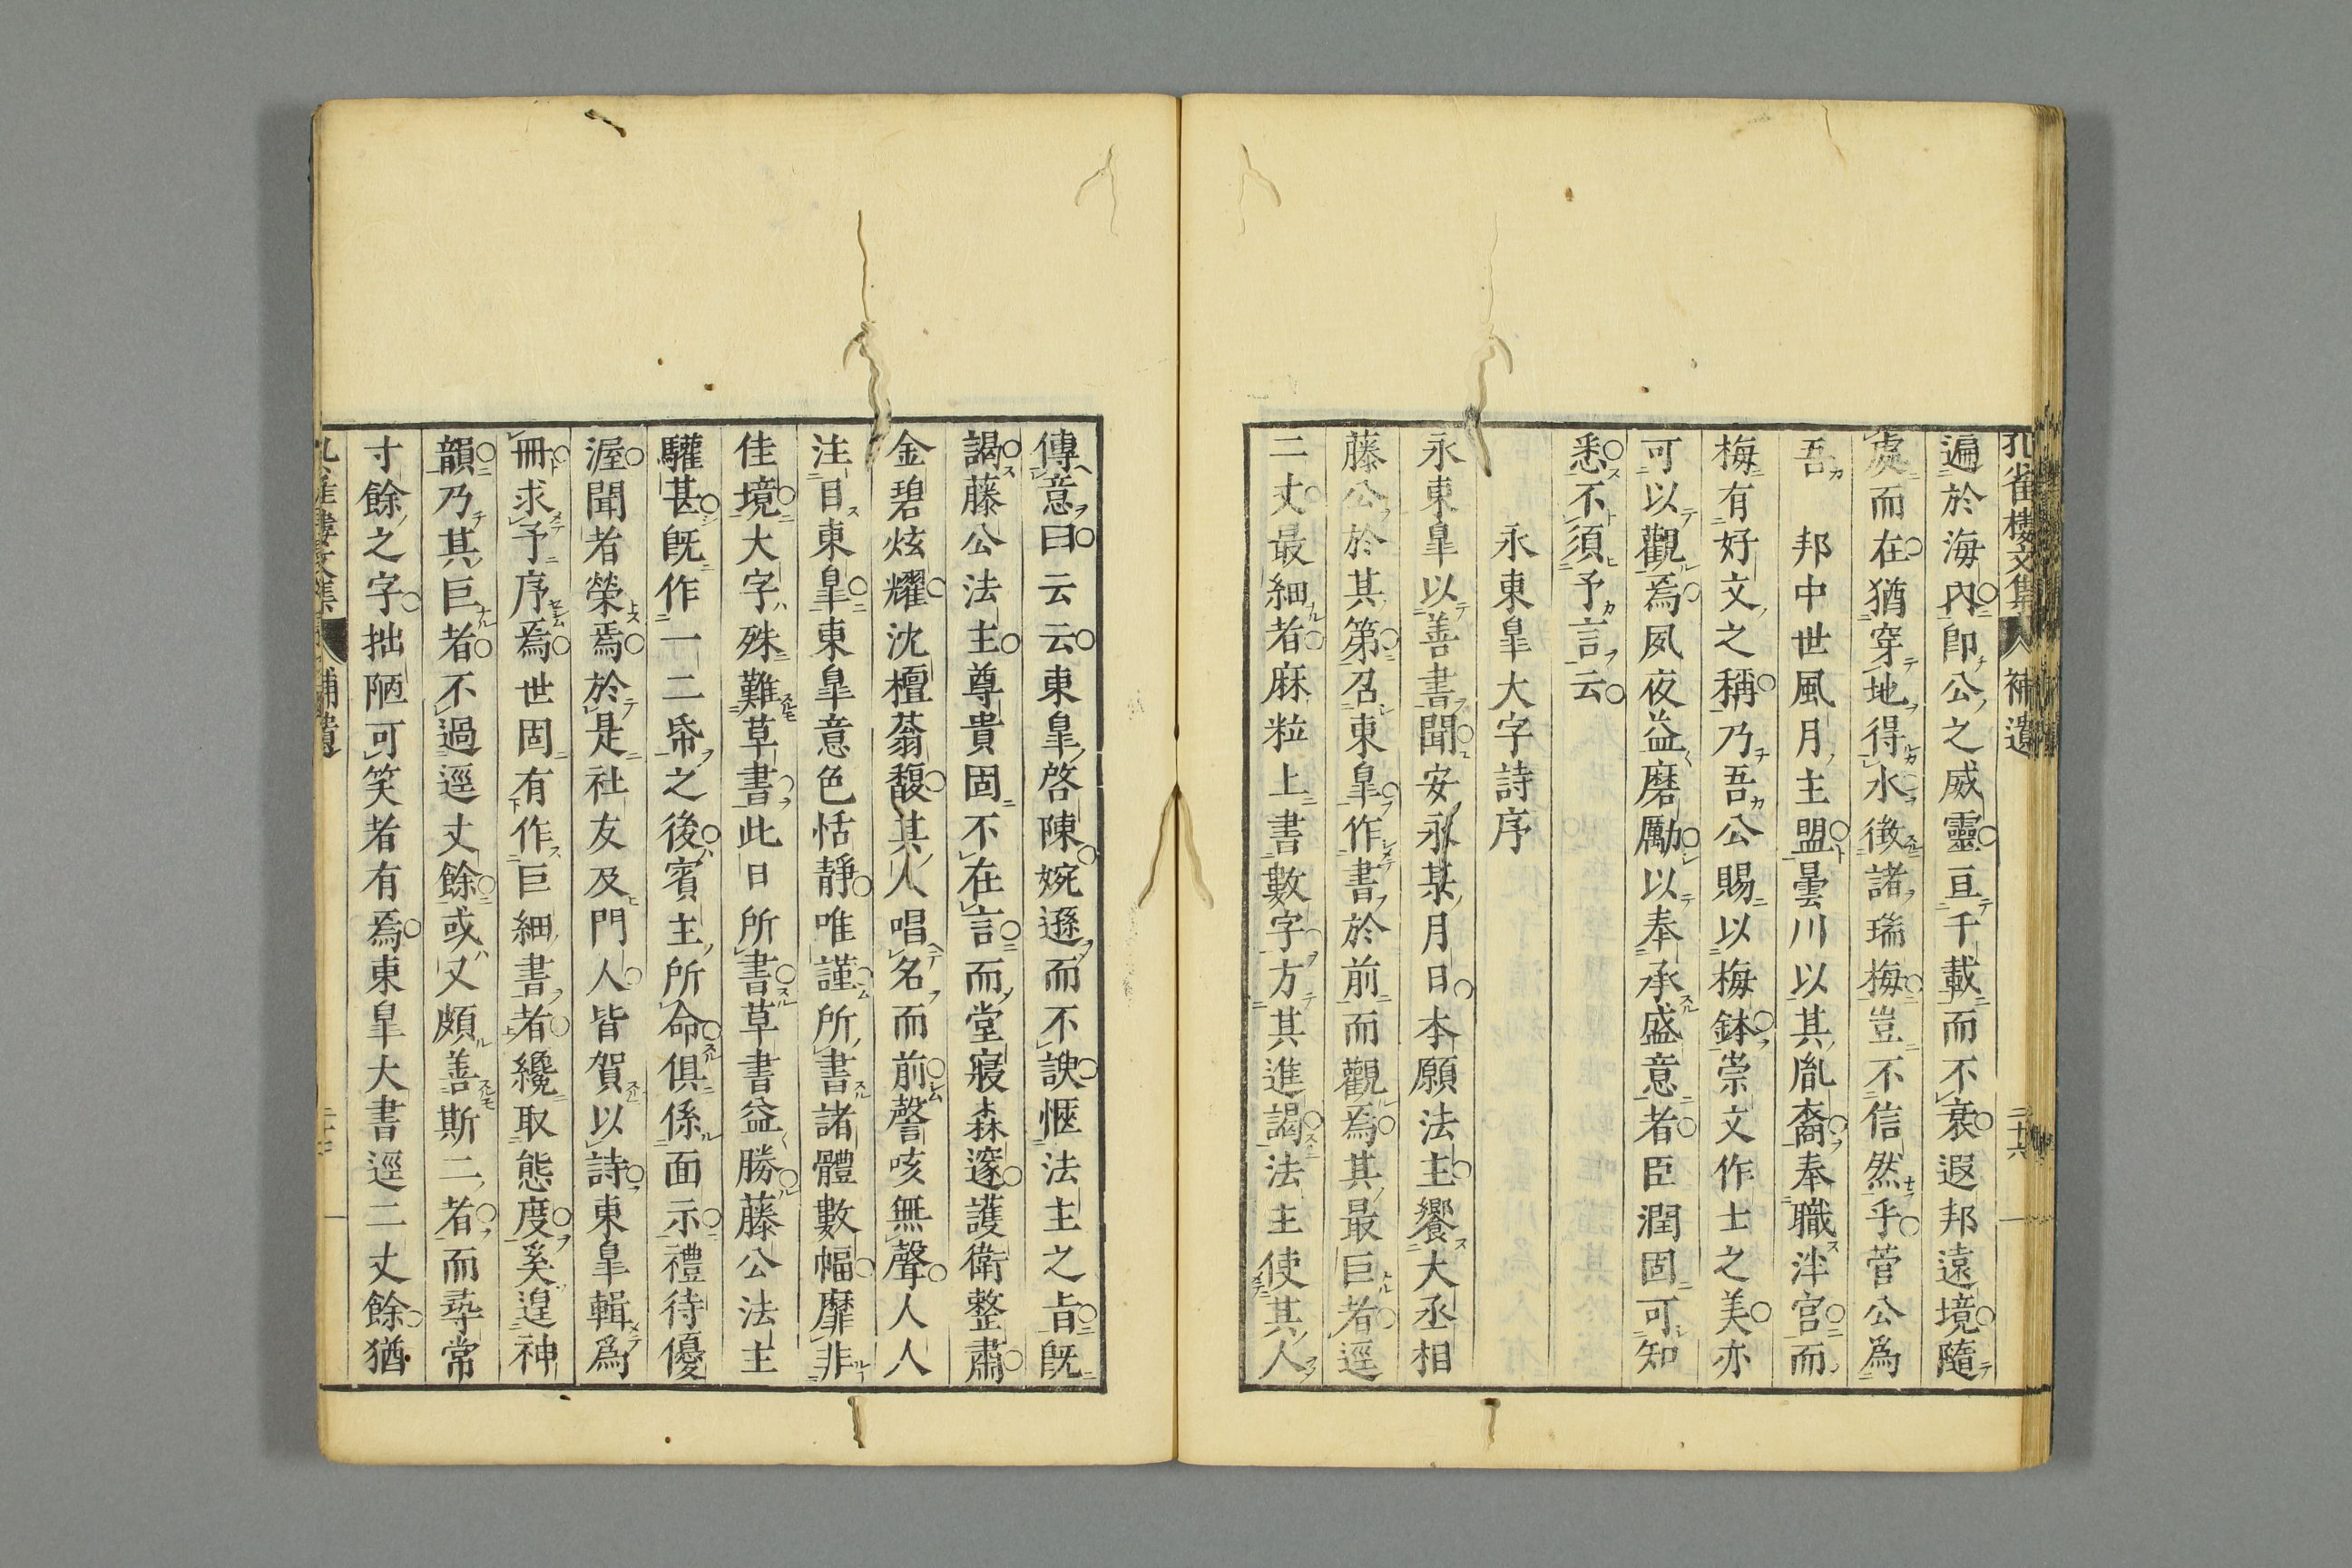 孔雀樓文集 補遺 二十六
遍於海內卽公之威靈亘千載而不衰遐邦遠境隨
處而在猶穿地得水徴諸瑞梅豈不信然乎菅公爲
吾 邦中世風月主盟曇川以其胤裔奉職泮宮而
梅有好文之稱乃吾公賜以梅鉢崇文作士之美亦
可以觀焉夙夜益磨勵以奉承盛意者臣潤固可知
悉不須予言云
永東皐大字詩序
永東皐以善書聞安永某月日本願法主饗大丞相
藤公於其第召東皐作書於前而觀焉其最巨者逕
二丈最細者麻粒上書數字方其進謁法主使其人
傳意曰云云東皐啓陳婉遜而不諛愜法主之旨旣
謁藤公法主尊貴固不在言而堂寢森邃護衛整肅
金碧炫燿沈檀蓊馥其人唱名而前謦咳無聲人人
注目東皐東皐意色恬靜唯謹所書諸體數幅靡非
佳境大字殊難草書此日所書草書益勝藤公法主
驩甚旣作一二帋之後賓主所命俱係面示禮待優
渥聞者榮焉於是社友及門人皆賀以詩東皐輯爲
冊求予序焉世固有作巨細書者纔取態度奚遑神
韻乃其巨者不過逕丈餘或又頗善斯二者而尋常
寸餘之字拙陋可笑者有焉東皐大書逕二丈餘猶
孔雀樓文集 補遺